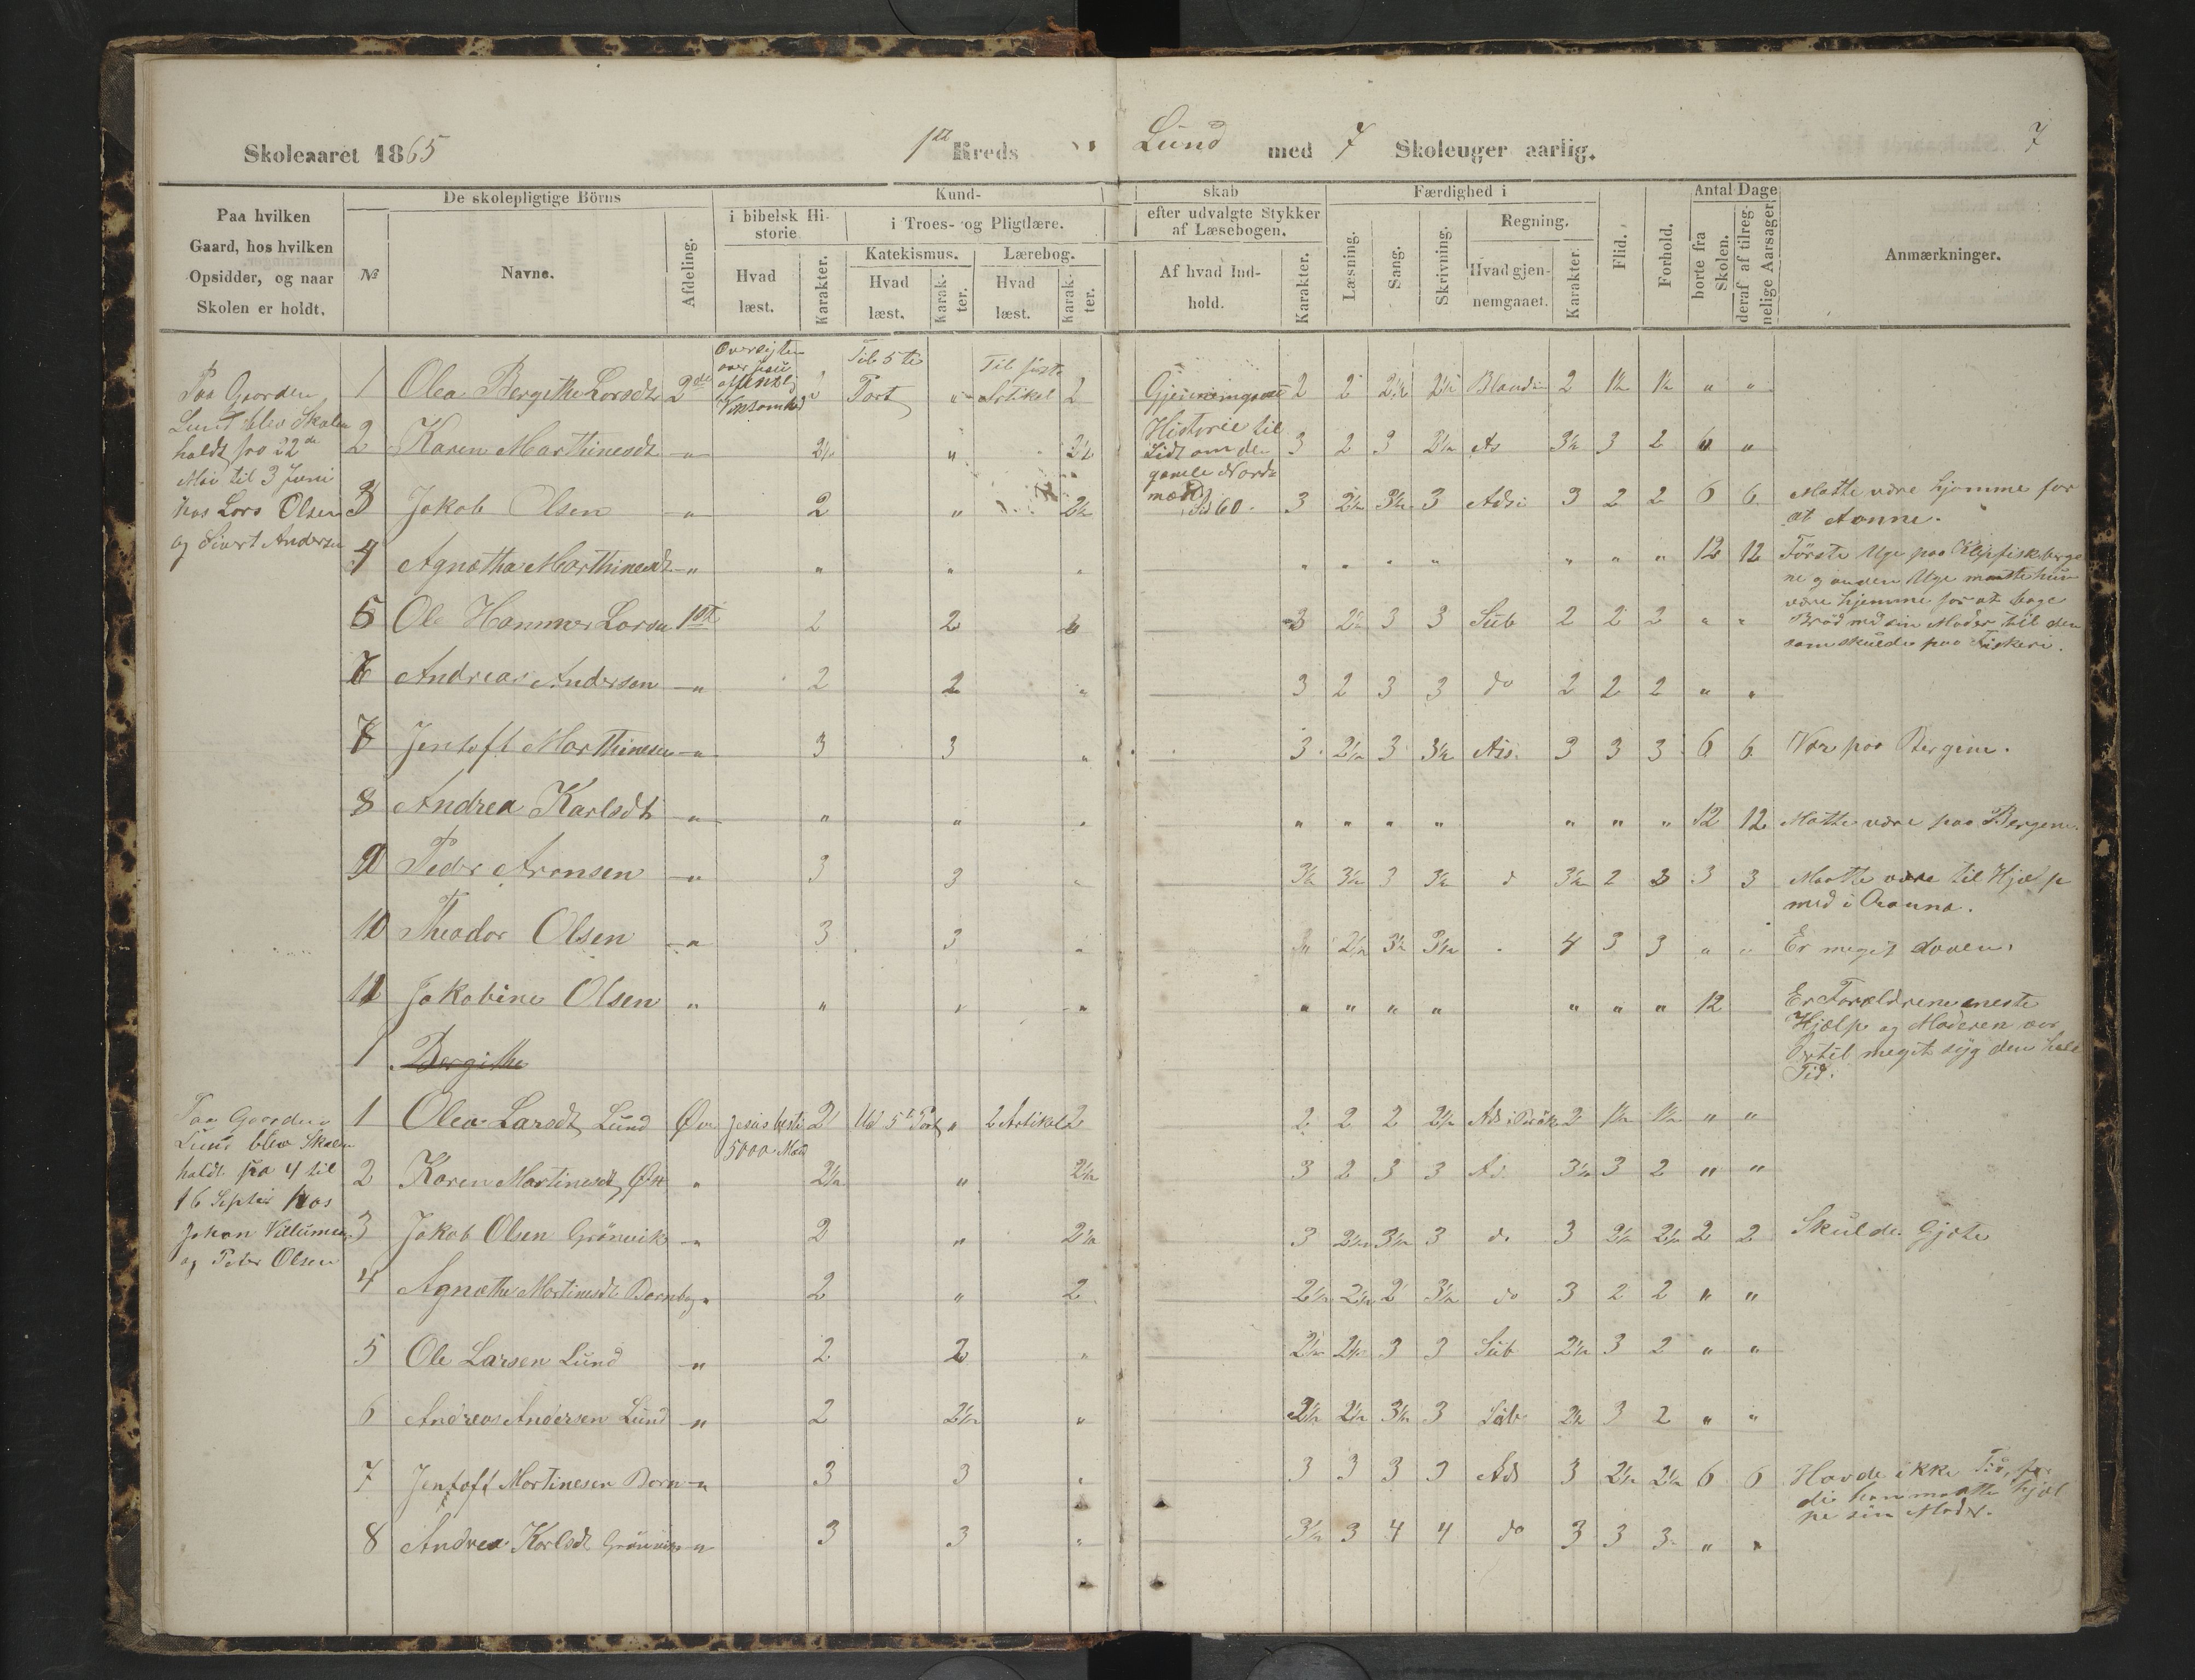 Skoleaaret 1865
1ste Kreds Lund med 7 Skoleuger aarlig.
7
Paa hvilken Gaard, hos hvilken Opsidder, og naar Skolen er holdt.
De skolepligtige Börns
№
Navne.
Afdeling.
Kundskab
i bibelsk Historie
Hvad læst.
Karakter.
i Troes- og Pligtlære.
Katekismus.
Hvad læst.
Karakter.
Lærebog.
Hvad læst.
Karakter.
efter udvalgte Stykker af Læsebogen.
Af hvad Indhold.
Karakter.
Færdighed i
Læsning.
Sang.
Skrivning.
Regning.
Hvad gjennemgaaet.
Karakter.
Flid.
Forhold.
Antal Dage
borte fra Skolen.
deraf af tilregnelige Aarsager
Anmærkninger.
Paa Gaarden
Lund blev Skolen
holdt fra 22de
Mai til 3 Juni
hos Lars Olsen
og Sivert Andersen
1 Olea Bergitthe Larsdt 2de Oversigten over Jesu offentlig Virksomhed 2 Til 5te Part " Til første Artikel 2 2 2 2½ 2½ Blandin 2 1½ 1½ " "
Historie til
Lidt om de
gamle Nord
mænd
Sid 60.
2 Karen Marthinesdt " 2½ " 2½ 3 2 3 2½ As 3½ 3 2 6 "
3 Jakob Olsen " 2 " 2½ 3 2½ 3½ 3 Adi 3 2 2 6 6 Maatte være hjemme for
at Aanne.
4 Agnætha Marthinesdt " " " " " " " " " " " 12 12 Første Uge paa Klipfiskberge
ne og anden Uge maatte hun
være hjemme for at bage
Brød med sin Moder til dem
som skulde paa Fiskeri.
5 Ole Hammer Larsen 1ste 2 2 " 3 2½ 3 3 Sub 2 2 2 " "
6 Andreas Andersen " 2 2 " 3 2 3 3 do 2 2 2 " "
7 Jentoft Marthinesen " 3 3 " 3 2½ 3 3½ Ads. 3 3 3 6 6 Var paa Bergene.
8 Andrea Karlsdt " " " " " " " " " " " 12 12 Maatte være paa Bergene.
9 Peder Aronsen " 3 3 " 3½ 3½ 3 3½ d 3½ 2 3 3 3 Maatte være til Hjælp
med i Aaanna.
10 Theodor Olsen " 3 3 " 2½ 3½ 3½ " 4 3 3 " " Er meget doven.
11 Jakobine Olsen " " " " " " " " " " " 12 Er Forældrene eneste
Hjælp og Moderen var
dertil meget syg den hele
Tid.
1 Bergitthe
Paa Gaarden
Lund blev Skolen
holdt fra 4 til
16 Septbr hos
Johan Villumsen
og Peder Olsen
1 Olea Larsdt Lund Øv Jesus besp 5000 Mænd 2 Ud 5te Part " 2 Artikel 2 2 2 2 2½ 2 1½ 1½ " "
2 Karen Martinesdt " 2½ " 2½ 3 2 3 3 Ad. 3½ 3 2 " "
3 Jakob Olsen Grønvik " 2 " 2½ 3 2½ 3½ 3 do 3 2½ 2½ 2 2 Skulde Gjete
4 Agnæthe Martinesdt " 2 " 2 2½ 2½ 2 3½ do 3 2 2 " "
5 Ole Larsen Lund " 2 2 " 2½ 2½ 3 3 Sub 2½ 3 2 " "
6 Andreas Andersen Lund " 2 2½ " 2½ 2½ 3½ 3 Sub 2½ 3 2 " "
7 Jentoft Martinesen " 3 3 " 3 3 3 3 Ads 3 2½ 2½ 6 6 Havde ikke Tid, for
di han maatte hjæl
pe sin Moder.
8 Andrea Karlsdt Grønvik " 3 3 " 3½ 3 4 4 do 3 3 3 " "